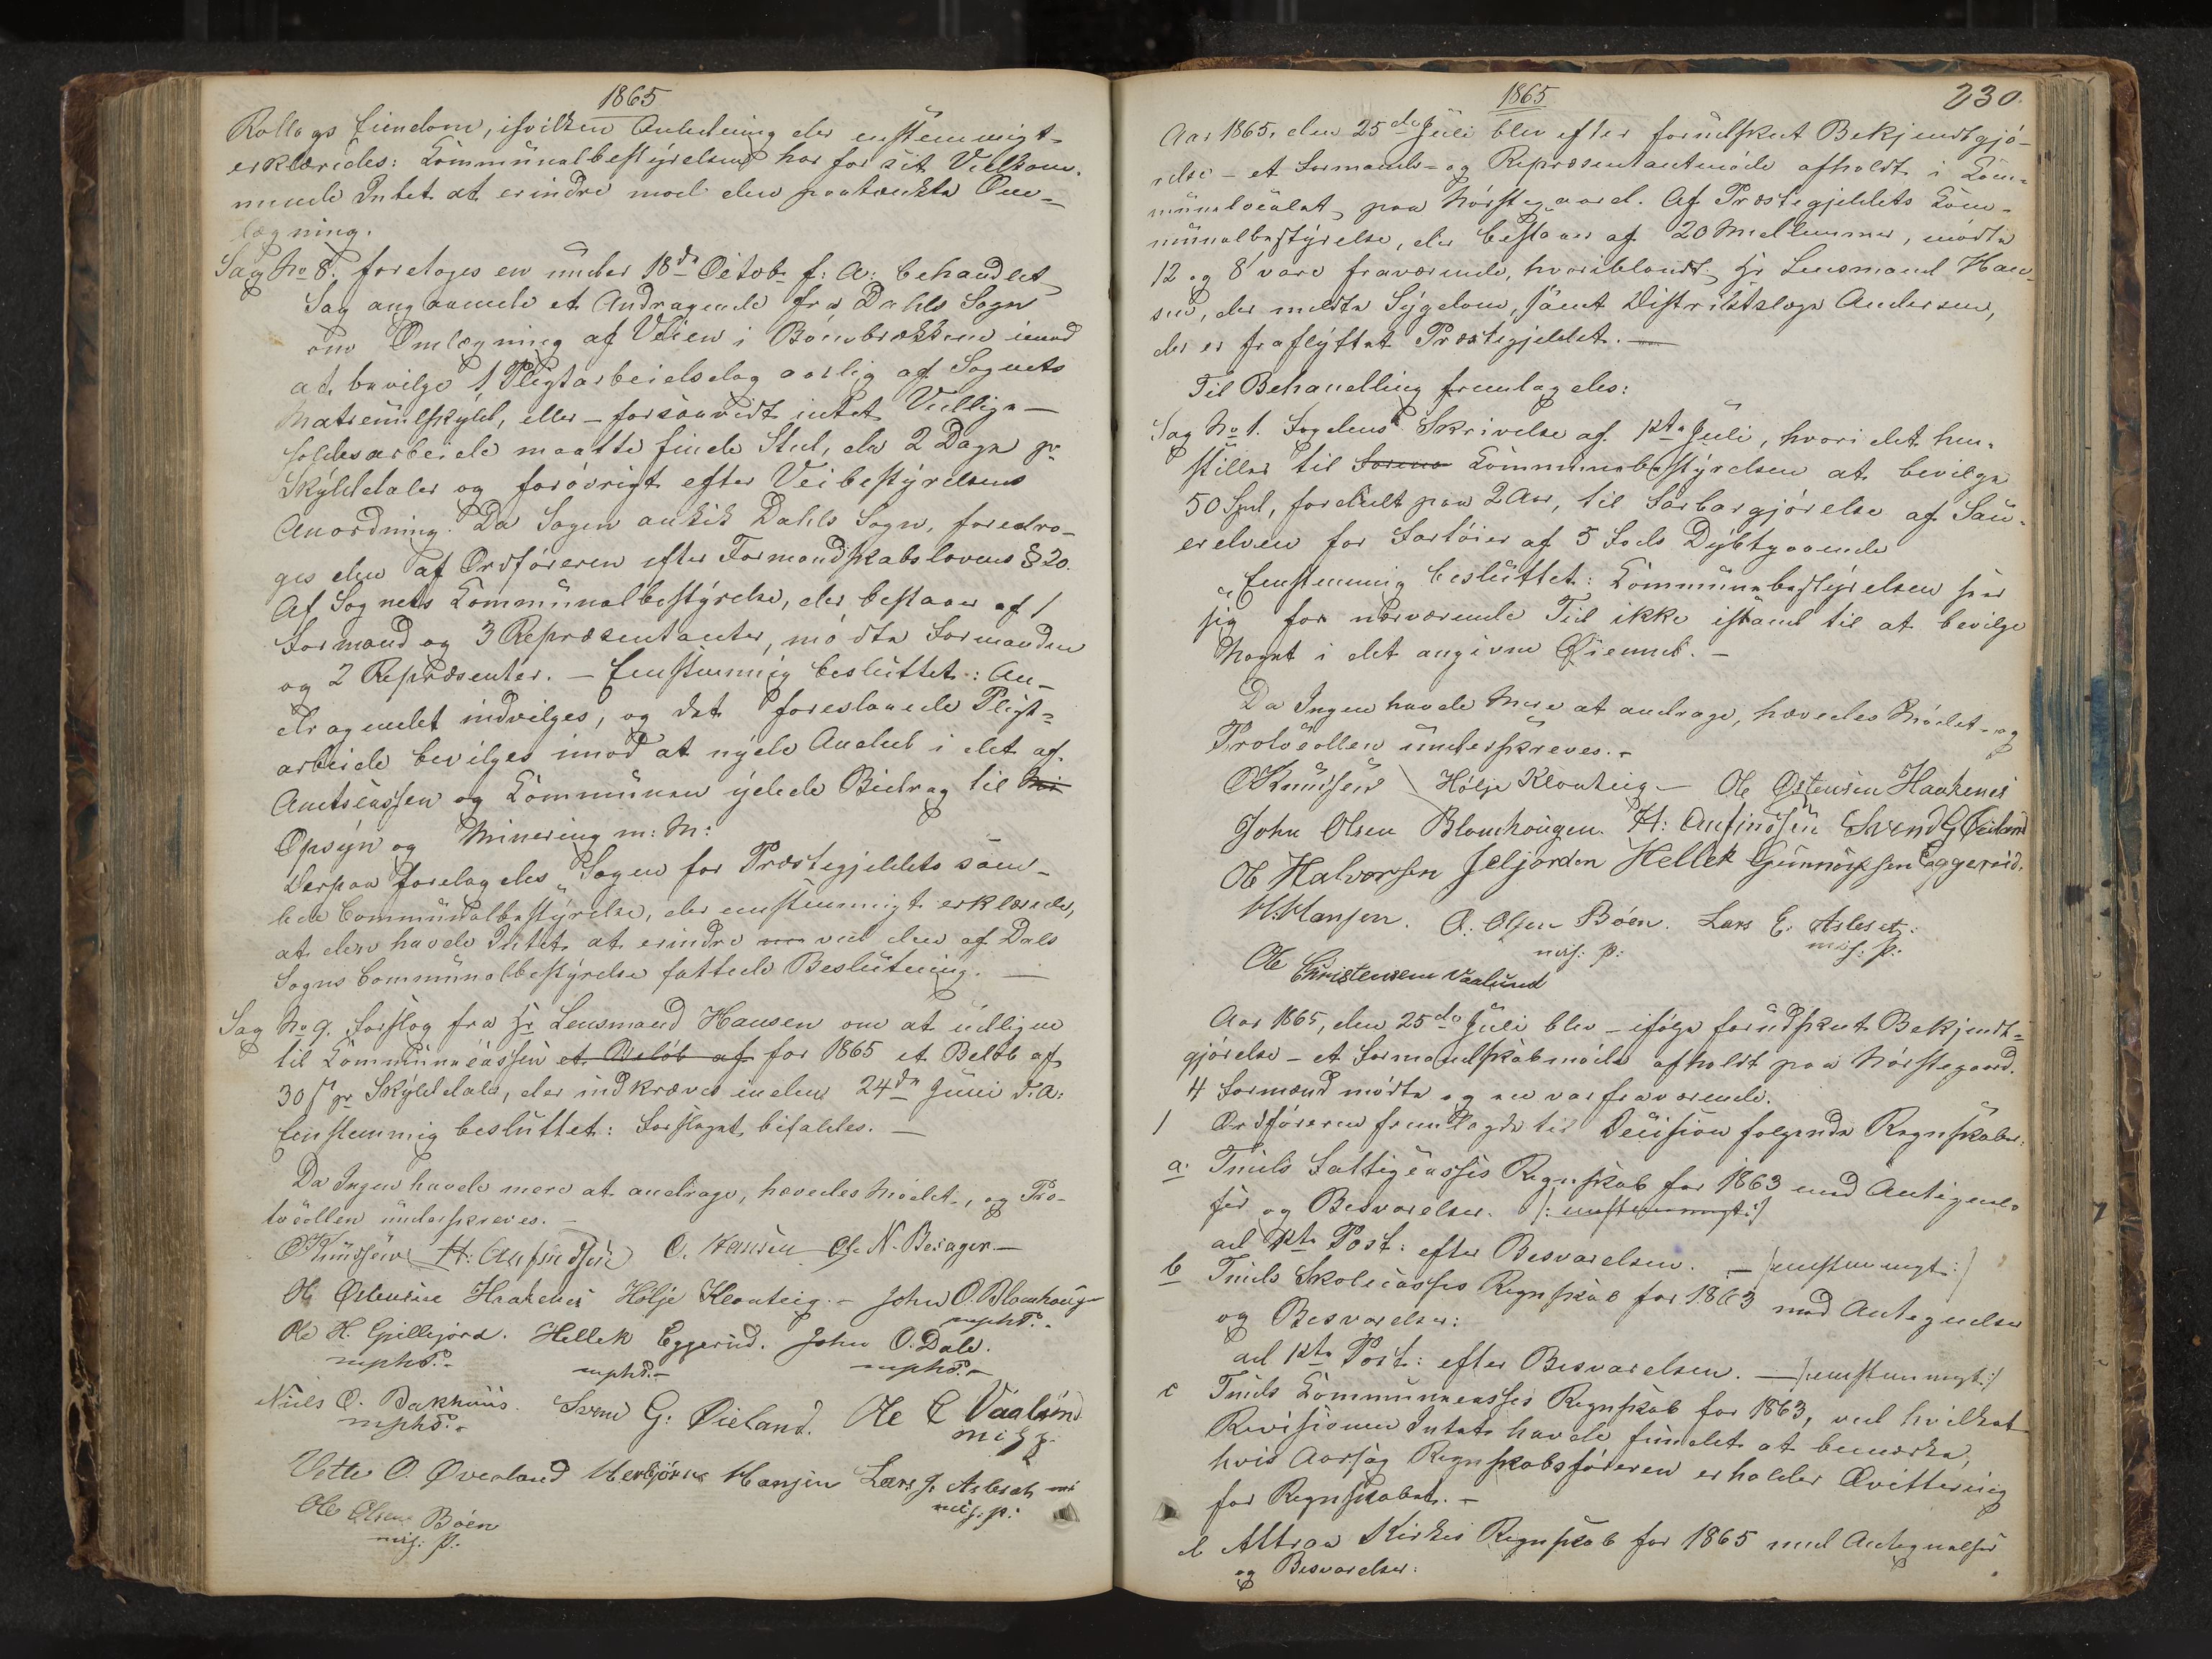 1865
Rollags Eiendom, ihvilken Anledning der enstemmigt
erklæredes: Kommunalbestyrelsen har for sit Vedkom-
mende Intet at erindre mod den paatænkte Om-
lægning.
Sag No 8. foretoges en under 18de Octob. f: A: behandlet
Sag angaaende et Andragende fra Dahls Sogn
om Omlægning af Veien i Böenbrækken imod
at bevilge 1 Pligtarbeidsdag aarlig af Sognets
Matriculskyld, eller – forsaavidt intet Vedlige-
holdesarbeide maatte finde Sted, da 2 Dage pr
Skylddaler og forövrigt efter Veibestyrelsens
Anordning. Da Sagen ankik Dahls Sogn, foredro-
ges den af Ordföreren efter Formandskabslovens § 20.
Af Sognets Kommunalbestyrelse, der bestaaer af 1
Formand og 3 Repræsentanter, mödte Formanden
og 2 Repræsenter. – Enstemmig besluttet: An-
dragendet indvilges, og det foreslaaede Pligt-
arbeide bevilges imod at nyde Andeel i det af
Amtscassen og Kommunen ydede Bidrag til Mi
Opsyn og Minering m: M:
Derpaa forelagdes Sagen for Præstegjeldets sam-
lede Communalbestyrelse, der enstemmigt erklærede,
at den havde Intet at erindre ved den af Dals
Sogns Communalbestyrelse fattede Beslutning. –
Sag No 9. Forslag fra Hr Lensmand Hansen om at udligne
til Kommunecassen et Belöb af for 1865 et Belöb af
30 ß pr Skylddaler, der indkræves inden 24de Juni d. A:
Enstemmig besluttet: Forslaget bifaldes. –
Da Ingen havde mere at andrage, hævedes Mödet, og Pro-
tocollen underskreves. –
O Knudsen H: Anfindsen O. Hansen Ole N. Beiager. –
Ole Østensen Haakenes Hölje Klouteig. – John O. Blomhougen
mphP. –
Ole H. Gjellejord. Hellek Eggerud. John O. Dale.
mphP. – mphP. – mphP. –
Niels O. Bakhuus. Svend G: Øieland. Ole C Vaalund
mphP. – m i g p.
Vetle O. Øverland Herbjörn Hansen Lars J. Asleset
Ole Olsen Böen m: f: p:
m: f: p:
1865
230.
Aar 1865, den 25de Juli blev efter forudskeet Bekjendtgjö-
relse – et Formands- og Repræsentantmöde afholdt i Kom-
munelocalet paa Nörstegaard. Af Præstegjeldets Kom-
munalbestyrelse, der bestaaer af 20 Medlemmer, mödte
12 og 8 vare fraværende, hvoriblandt Hr Lensmand Han-
sen, der meldte Sygdom, samt Distriktslæge Andersen,
der er fraflyttet Præstegjeldet. –
Til Behandling fremlagdes:
Sag No 1. Fogdens Skrivelse af 1ste Juli, hvori det hen-
stilles til Kommunebestyrelsen at bevilge
50 Spd, fordeelt paa 2 Aar, til Farbargjörelse af Sau-
erelven for Fartöier af 5 Fods Dybtgaaende
Enstemmig besluttet: Kommunebestyrelsen seer
sig for nærværende Tid ikke istand til at bevilge
Noget i det angivne Öiemed. –
Da Ingen havde Mere at andrage, hævedes Mödet – og
Protocollen underskreves. –
O Knudsen Hölje Klouteig – Ole Østensen Haakenes
John Olsen Blomhougen. H: Anfindsen Svend G Øieland
Ole Halvorsen Jeljorden Hellek Gunnulfsen Eggerud.
H. Hansen. O. Olsen Böen. Lars E. Asleset.
m: f: p: m: f: p:
Ole Christensen Vaalund
Aar 1865, den 25de Juli blev – ifölge forudskeet Bekjendt-
gjörelse – et Formandskabsmöde afholdt paa Nörstegaard.
4 Formænd mödte og en var fraværende.
1 Ordföreren fremlagde til Decision følgende Regnskaber:
a. Tuuds Fattigcasses Regnskab for 1863 med Antegnel-
ser og Besvarelser. /: enstemmigt :/
ad 1ste Post: efter Besvarelsen. – /: enstemmigt :/
b Tuuds Skolecasses Regnskab for 1863 med Antegnelser
og Besvarelser:
ad 1ste Post: efter Besvarelsen. – /: enstemmigt :/
c Tuuds Kommunecasses Regnskab for 1863, ved hvilket
Revisionen Intet havde fundet at bemærke,
hvis Aarsag Regnskabsföreren erholder Qvittering
for Regnskabet. –
d Attraa Kirkes Regnskab for 1865 med Antegnelser
og Besvarelser: